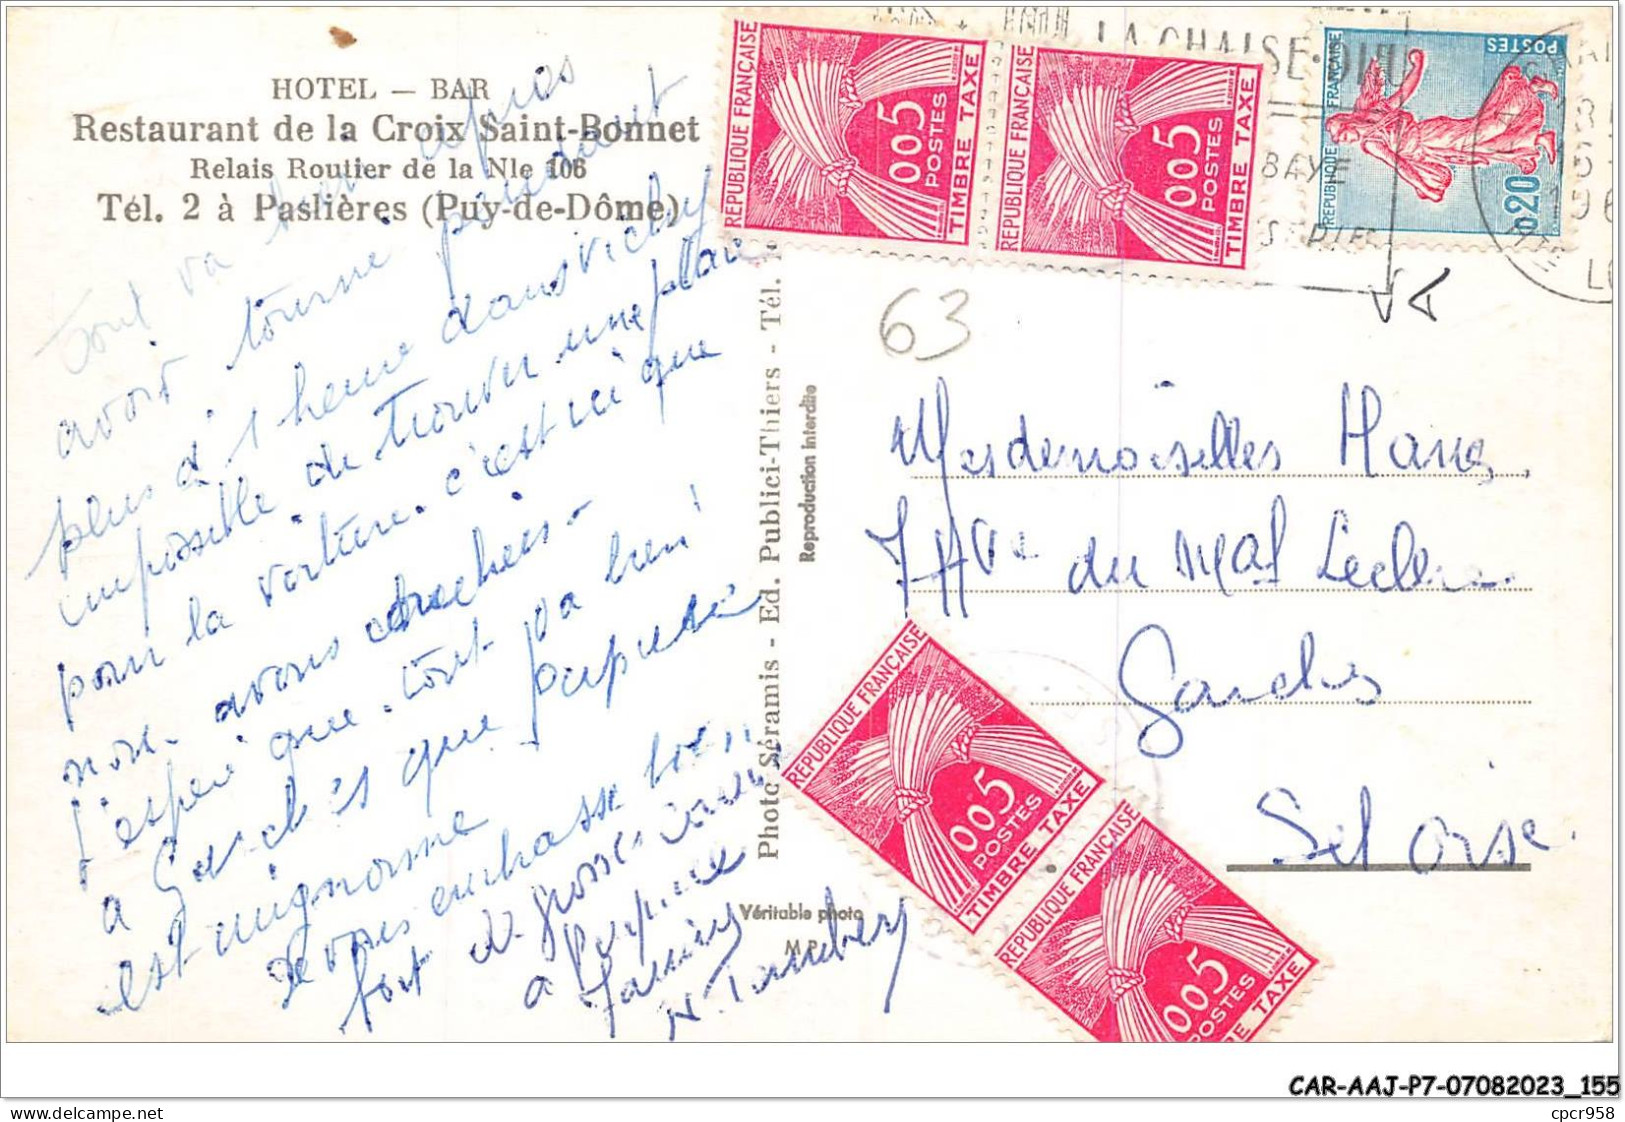 HOTEL — BAR
Restaurant de la Croix Saint-Bonnet
Relais Routier de la Nle 106
Tél. 2 à Paslières (Puy-de-Dôme)
Tout va bien après
avoir tourné pendant
plus d'1 heure dans Vichy
impossible de trouver une place
pour la voiture. c'est ici que
nous avons
j'espère que tout va bien
à Garches que
est mignonne
Je vous embrasse bien
fort de grosses
à
Photo Séramis - Ed. Publici-Thiers - Tél.
Reproduction interdite
Véritable photo
M.P.
RÉPUBLIQUE FRANÇAISE
0,05
POSTES
TIMBRE TAXE
RÉPUBLIQUE FRANÇAISE
0,05
POSTES
TIMBRE TAXE
LA CHAISE-DIEU
REPUBLIQUE FRANÇAISE
POSTES
0,20
63
Mesdemoiselles
7 Ave du Mal Leclerc
Garches
Set Oise.
RÉPUBLIQUE FRANÇAISE
0,05
POSTES
TIMBRE TAXE
RÉPUBLIQUE FRANÇAISE
0,05
POSTES
RE TAXE
CAR-AAJ-P7-07082023_155
cpcr958